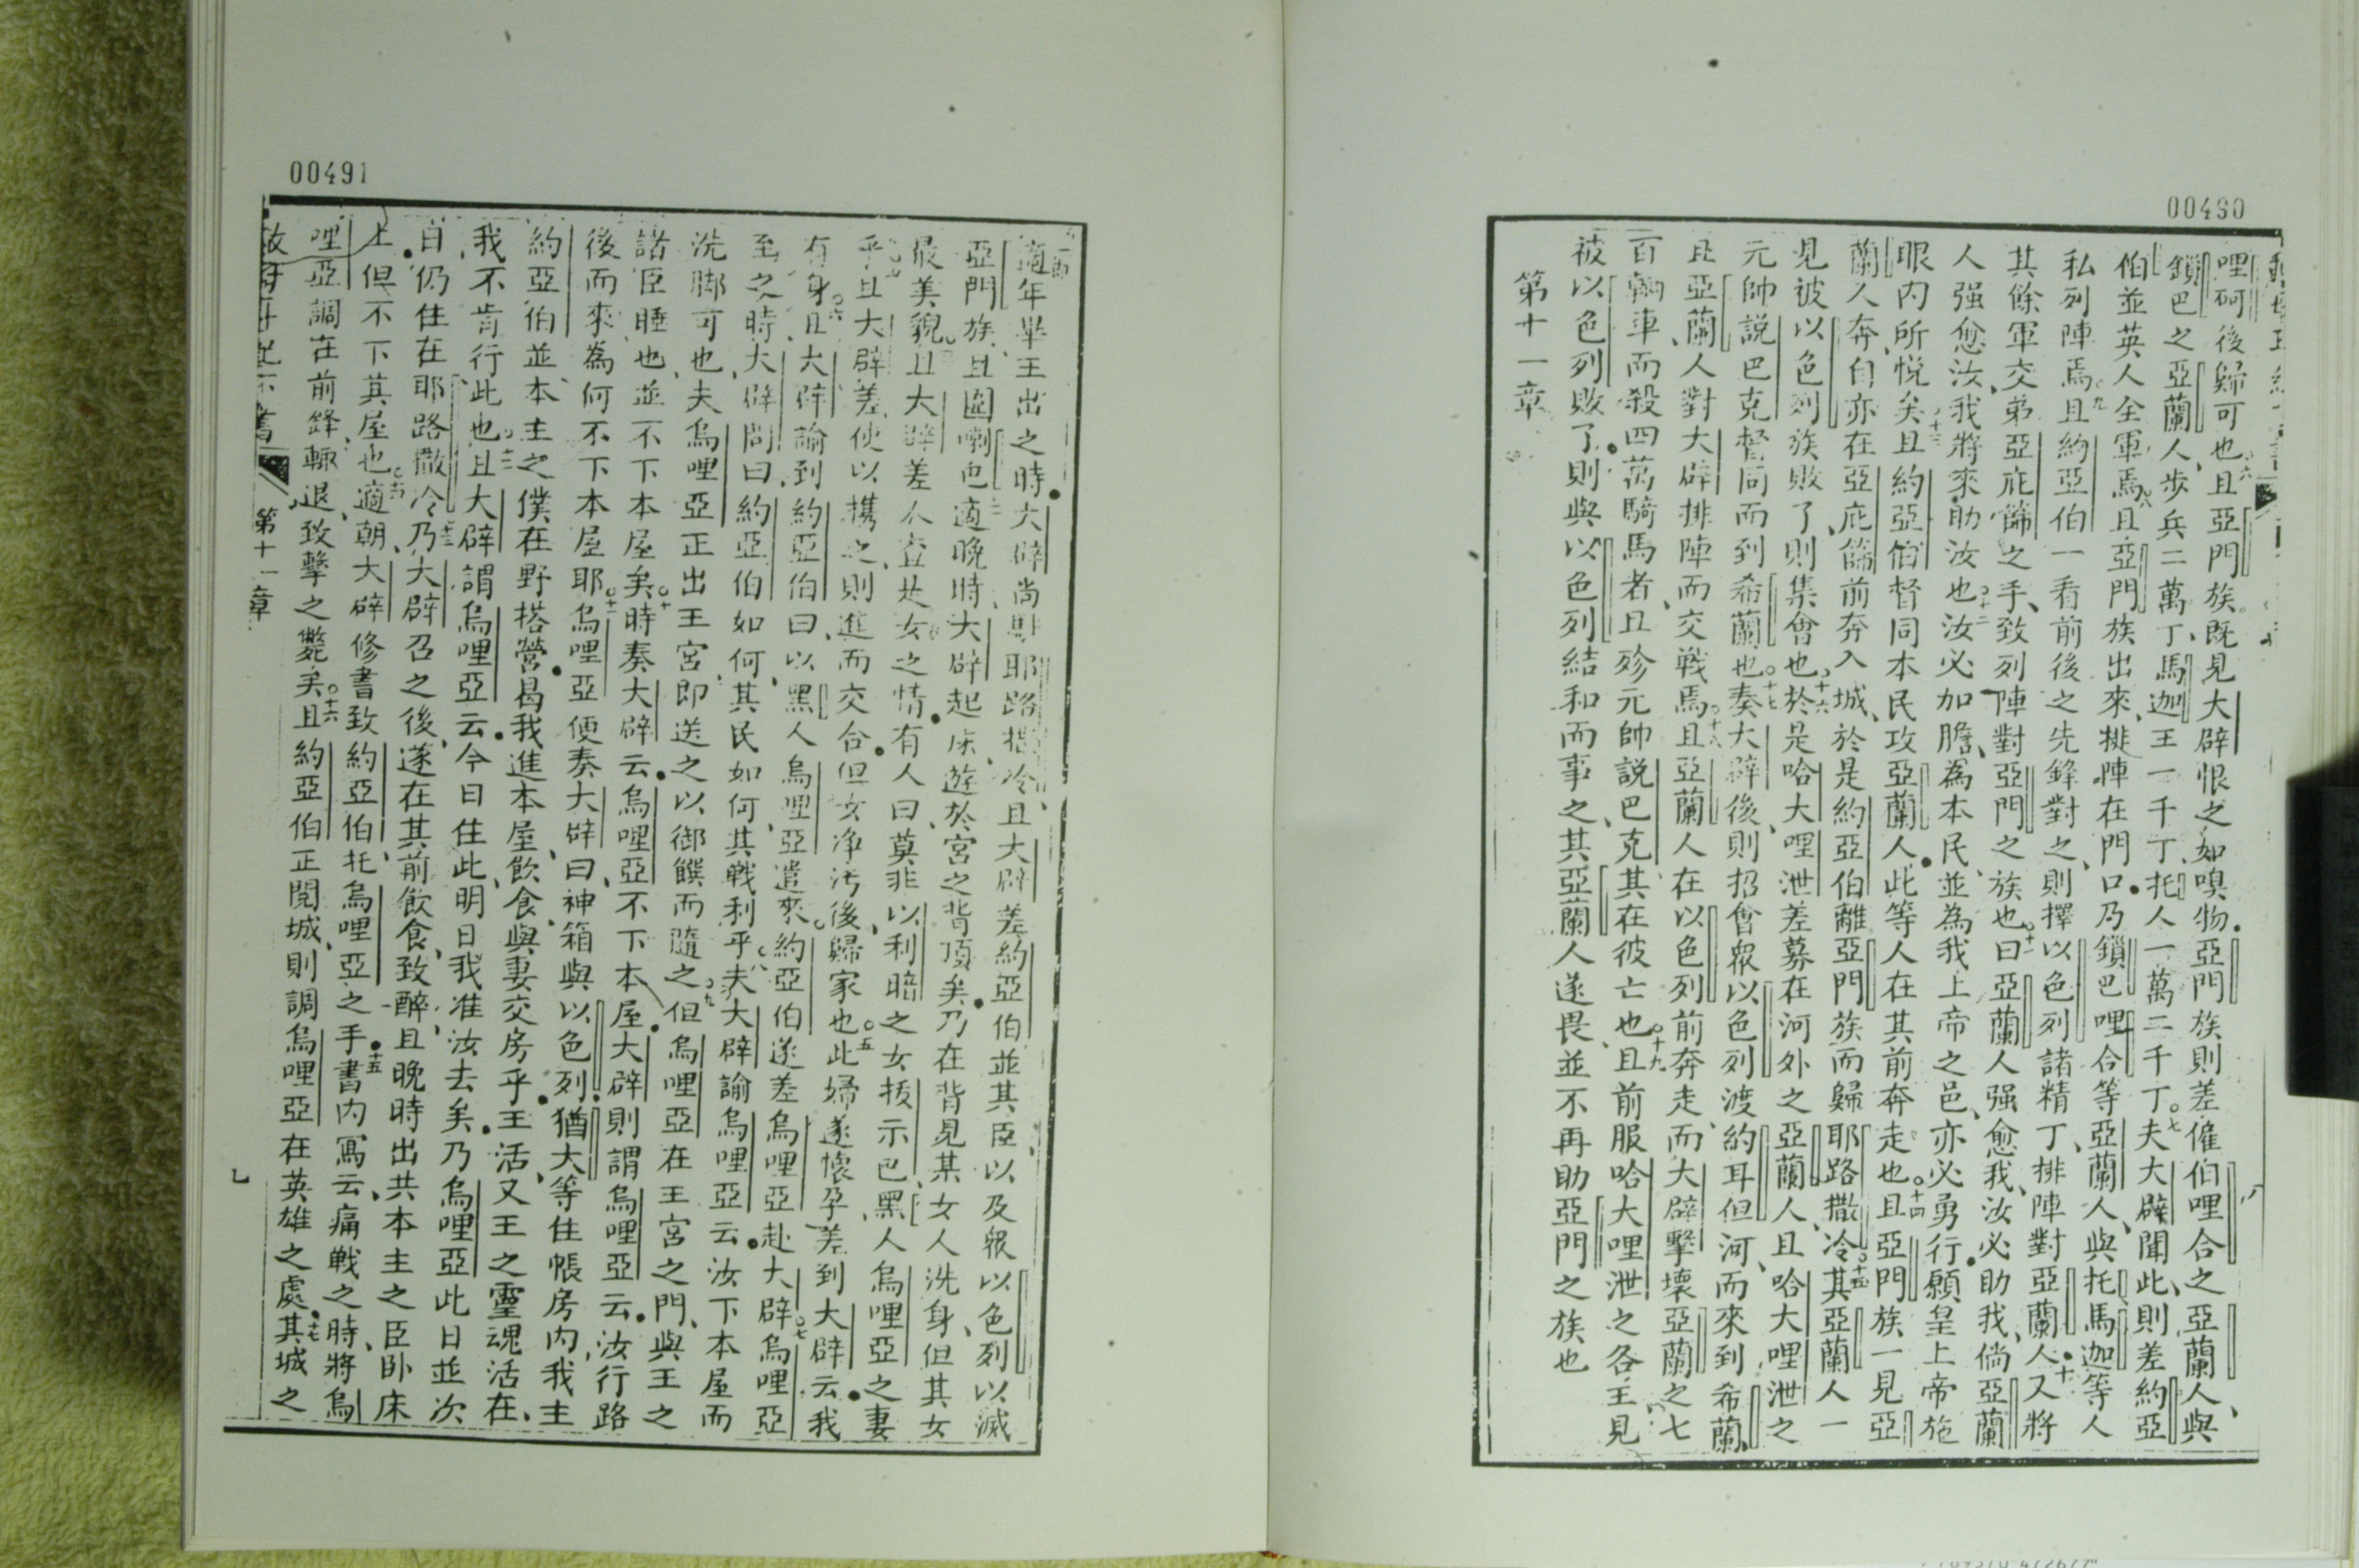 00490
哩砢後歸可也且亞門族既見大辟恨之如嗅物亞門族則差僱伯哩合之亞蘭人與
鎖巴之亞蘭人步兵二萬丁馬迦王一千丁托人一萬二千丁夫大辟聞此則差約亞
伯並英人全軍焉且亞門族出來排陣在門口乃鎖巴哩合等亞蘭人與托馬迦等人
私列陣焉且約亞伯一看前後之先鋒對之則擇以色列諸精丁排陣對亞蘭人又將
其餘軍交弟亞庇篩之手致列陣對亞門之族也曰亞蘭人强愈我汝必助我倘亞蘭
人强愈汝我將來助汝也汝必加膽為本民並為我上帝之邑亦必勇行願皇上帝施
眼內所悅矣且約亞伯督同本民攻亞蘭人此等人在其前奔走也且亞門族一見亞
蘭人奔自亦在亞庇篩前奔入城於是約亞伯離亞門族而歸耶路撒冷其亞蘭人一
見被以色列族敗了則集會也於是哈大哩泄差募在河外之亞蘭人且哈大哩泄之
元帥説巴克督同而到希蘭也奏大辟後則招會眾以色列渡約耳但河而來到希蘭
且亞蘭人對大辟排陣而交戰焉且亞蘭人在以色列前奔走而大辟擊壞亞蘭之七
百輛車而殺四萬騎馬者且殄元帥説巴克其在彼亡也且前服哈大哩泄之各王見
被以色列敗了則與以色列結和而事之其亞蘭人遂畏並不再助亞門之族也
第十一章
00491
適年畢王出之時大辟尚駐耶路撒冷且大辟差約亞伯並其臣以及眾以色列以滅
亞門族且圍喇包適晚時大辟起床遊於宮之背頂矣乃在背見某女人洗身但其女
最美貌且大辟差人查是女之情有人曰莫非以利暗之女拔示巴黑人烏哩亞之妻
乎且大辟差使以携之則進而交合但女净污後歸家也此婦遂懷孕差到大辟云我
有身且大辟諭到約亞伯曰以黑人烏哩亞遣來約亞伯遂差烏哩亞赴大辟烏哩亞
至之時大辟問曰約亞伯如何其民如何其戰利乎夫大辟諭烏哩亞云汝下本屋而
洗脚可也夫烏哩亞正出王宮即送之以御饌而隨之但烏哩亞在王宮之門與王之
諸臣睡也並不下本屋矣時奏大辟云烏哩亞不下本屋大辟則謂烏哩亞云汝行路
後而來為何不下本屋耶烏哩亞便奏大辟曰神箱與以色列猶大等住帳房內我主
約亞伯並本主之僕在野搭營曷我進本屋飲食與妻交房乎王活又王之靈魂活在
我不肯行此也且大辟謂烏哩亞云今日住此明日我准汝去矣乃烏哩亞此日並次
日仍住在耶路撒冷乃大辟召之後遂在其前飲食致醉且晚時出共本主之臣卧床
上但不下其屋也適朝大辟修書致約亞伯托烏哩亞之手書內寫云痛戰之時將烏
哩亞調在前鋒輙退致擊之斃矣且約亞伯正閱城則調烏哩亞在英雄之處其城之
第十一章